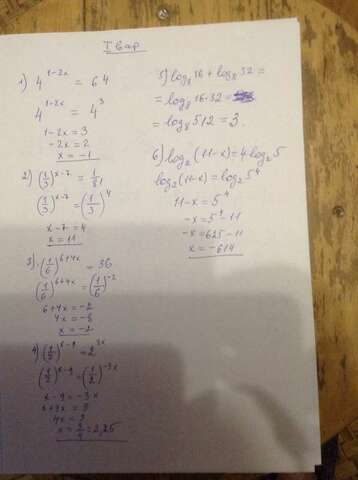 I вар
1) 4^(1-2x) = 64
4^(1-2x) = 4^3
1-2x = 3
-2x = 2
x = -1
2) (1/3)^(x-7) = 1/81
(1/3)^(x-7) = (1/3)^4
x-7 = 4
x = 11
3) (1/6)^(6+4x) = 36
(1/6)^(6+4x) = (1/6)^(-2)
6+4x = -2
4x = -8
x = -2
4) (1/2)^(x-9) = 2^(3x)
(1/2)^(x-9) = (1/2)^(-3x)
x-9 = -3x
x+3x = 9
4x = 9
x = 9/4 = 2,25
5) log₈16 + log₈32 =
= log₈16·32 =
= log₈512 = 3.
6) log₂(11-x) = 4·log₂5
log₂(11-x) = log₂5^4
11-x = 5^4
-x = 5^4-11
-x = 625-11
x = -614